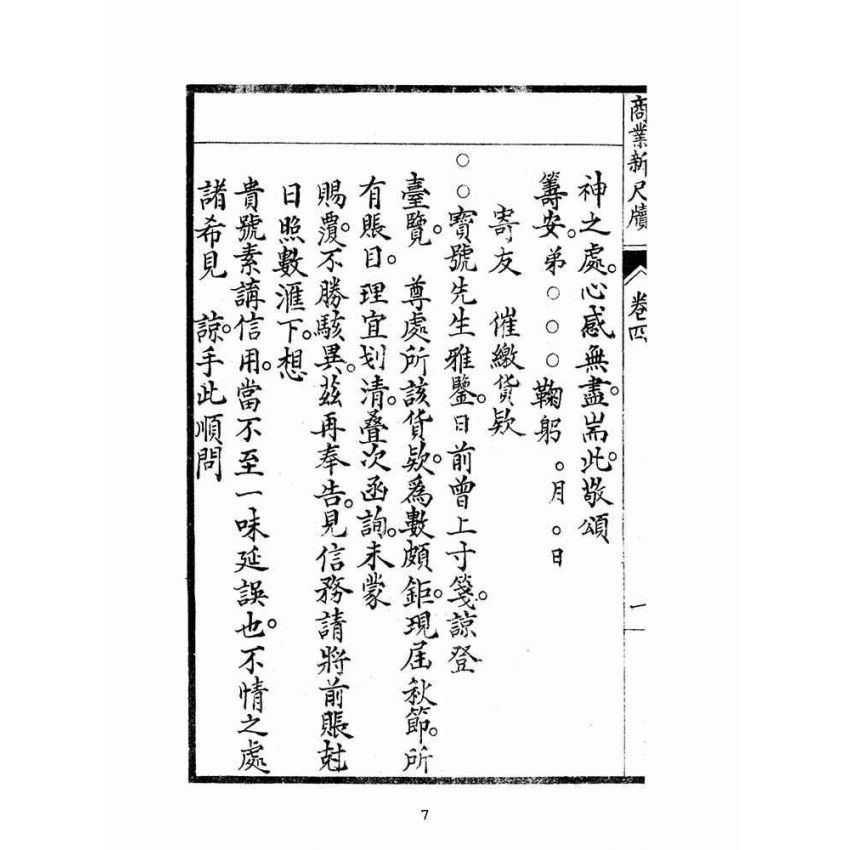 商業新尺牘 卷四 一
神之處。心感無盡。耑此。敬頌
籌安。弟○○○鞠躬 。月。日
寄友 催繳貨欵
○○寶號先生雅鑒。日前曾上寸箋。諒登
臺覽。 尊處所該貨欵。爲數頗鉅。現屆秋節。所
有賬目。理宜划清。叠次函詢。未蒙
賜覆。不勝駭異。茲再奉告。見信務請將前賬尅
日照數滙下。想
貴號素講信用。當不至一味延誤也。不情之處
諸希見 諒。手此順問
7